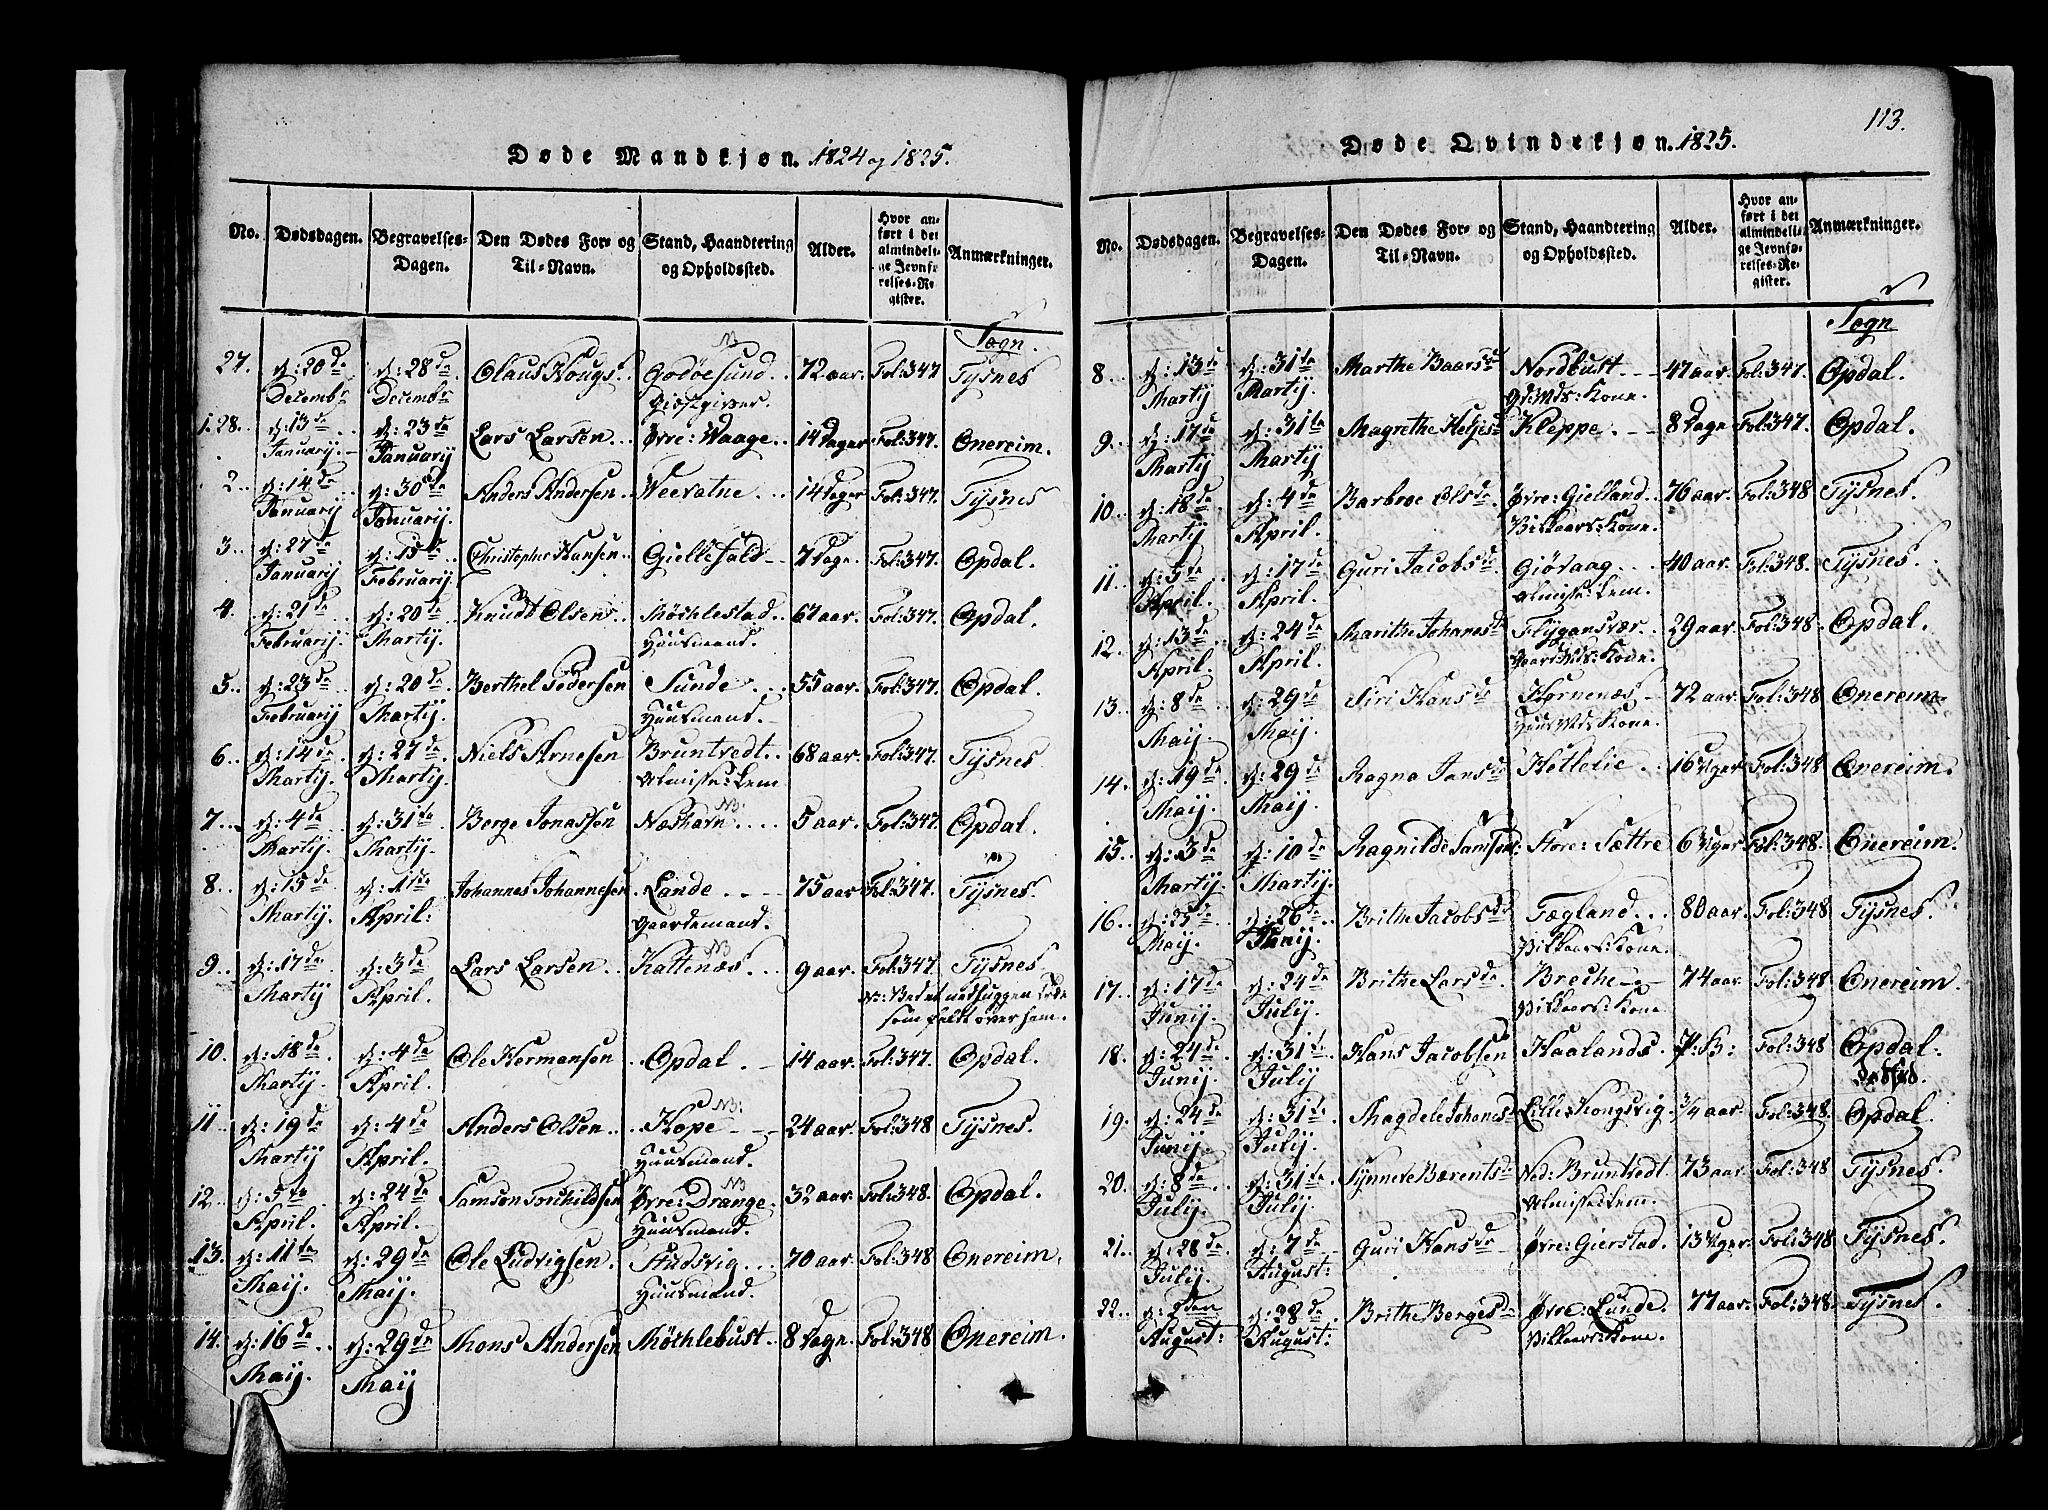 Døde Mandkjøn. 1824 og 1825.
No. Dødsdagen. Begravelses-Dagen. Den Dødes For- og Til-Navn. Stand, Haandtering og Opholdssted. Alder. Hvor anført i det almindelige Jevnførelses-Register. Anmærkninger.
Sogn.
27. d: 20de d: 28de Claus Hougs. Godøesund. NB 72 aar. Fol: 347 Tysnes
Decembr Decembr Giæstgiver.
1. 28. d: 13de d: 23de Lars Larsen. Øvre: Waage. 14 Dager Fol: 347. Onereim.
Januarij. Januarij
2. d: 14de d: 30de Anders Andersen Weevatne. 14 Dager Fol: 347. Tysnes
Januarij Januarij.
3. d: 27de d: 15de Christopher Hansen Gjellefald 7 Dage. Fol: 347. Opdal.
Januarij Februarij.
4. d: 21de d: 20de Knudt Olsen Møchlestad 67 aar. Fol: 347. Opdal.
Februarij Martij. Huusmand.
5. d: 23de d: 20de Berthel Pedersen Sunde. 55 aar. Fol: 347. Opdal.
Februarij Martij. Huusmand.
6. d: 14de d: 27de Niels Arnesen Bruntvedt. 68 aar. Fol: 347. Tysnes
Martij. Martij. Almisse: Lem
7. d: 4de d: 31te Berge Jonassen Næshavn. NB: 5 aar. Fol: 347. Opdal.
Martij. Martij.
8. d: 15de d: 1ste Johannes Johannesen Lande. 75 aar Fol: 347. Tysnes
Martij. April: Gaardemand.
9. d: 17de d: 3de Lars Larsen. Kattenæs. NB 9 aar. Fol: 347. Tysnes
Martij April. NB: Ved et nedhuggen Træ
som faldt over ham.
10. d: 18de d: 4de Ole Hermansen Opdal. 14 aar. Fol: 347. Opdal.
Martij. April.
11. d: 19de d: 4de Anders Olsen. Hope. NB: 24 aar. Fol: 348 Tysnes.
Martij April. Huusmand.
12. d: 5te d: 24de Samson Torchildsen Øvre: Drange. NB 32 aar Fol: 348. Opdal.
April. April. Huusmand.
13. d: 11te d: 29de Ole Ludvigsen. Hudsvig. 70 aar Fol: 348 Onereim.
Maij. Maij. Huusmand.
14. d: 16de d: 29de Mons Andersen Møchlebust. 8 Dage. Fol: 348 Onereim.
Maij. Maij
113.
Døde Qvindekjøn. 1825.
No. Dødsdagen. Begravelses-Dagen. Den Dødes For- og Til-Navn. Stand, Haandtering og Opholdssted. Alder. Hvor anført i det almindelige Jevnførelses-Register. Anmærkninger.
Sogn
8. d: 13de d: 31te Marthe Baarsd Nordbust 47 aar. Fol: 347. Opdal.
Martij Martij. Gdmds: Kone.
9. d: 17de d: 31te Magrethe Helgesd Kleppe. 8 Dage Fol: 347. Opdal.
Martij Martij
10. d: 18de d: 4de Barbroe Olsdr Øvre: Gielland. 76 aar. Fol: 348 Tysnes.
Martij April. Vilkaars: Kone.
11. d: 5te d: 17de Guri Jacobsd. Giøraag. 40 aar. Fol: 348. Tysnes.
April. April. Almisse: Lem.
12. d: 13de d: 24de Marithe Johanesd Flygansvær. 29 aar. Fol: 348 Opdal.
April. April. Gaardmds: Kone.
13. d: 8de d: 29de Siri Hansd Hornenæs 72 aar. Fol: 348 Onereim
Maij. Maij. Huusmds: Kone.
14. d: 19de d: 29de Ragna Jansd Hetlelie. 16 Uger Fol: 348 Onereim.
Maij. Maij.
15. d: 3de d: 10de Ragnilde Samsond: Store: Sættre 6 Uger Fol: 348. Onereim.
Martij Martij.
16. d: 25de d: 26de Brithe Jacobsd Tegland. 80 aar. Fol: 348 Tysnes.
Maij. Junij. Vilkaars: Kone.
17. d: 17de d: 24de Brithe Larsd Breche. 74 aar. Fol: 348 Onereim.
Junij. Julij. Vilkaars: Kone
18. d: 24de d: 31te Hans Jacobsen Haalands. P: B: Fol: 348 Opdal.
Junij. Julij Dødfød.
19. d: 24de d: 31te Magdele Johanesd Lille: Kongsvig. 3/4 aar. Fol: 348 Opdal
Junij. Julij.
20. d: 8de d: 31te Synneve Bærentsd Ned: Bruntvedt. 73 aar. Fol: 348 Tysnes.
Julij. Julij. Almisse: Lem.
21. d: 28de d: 7de Guri Hansdr Øvre: Gierstad. 13 Uger. Fol: 348 Tysnes.
Julij. August:
22. d: 2den d: 28de Brithe Bergesdr Øvre: Lunde. 77 aar. Fol: 348. Tysnes.
August: August: Vilkaars: Kone.